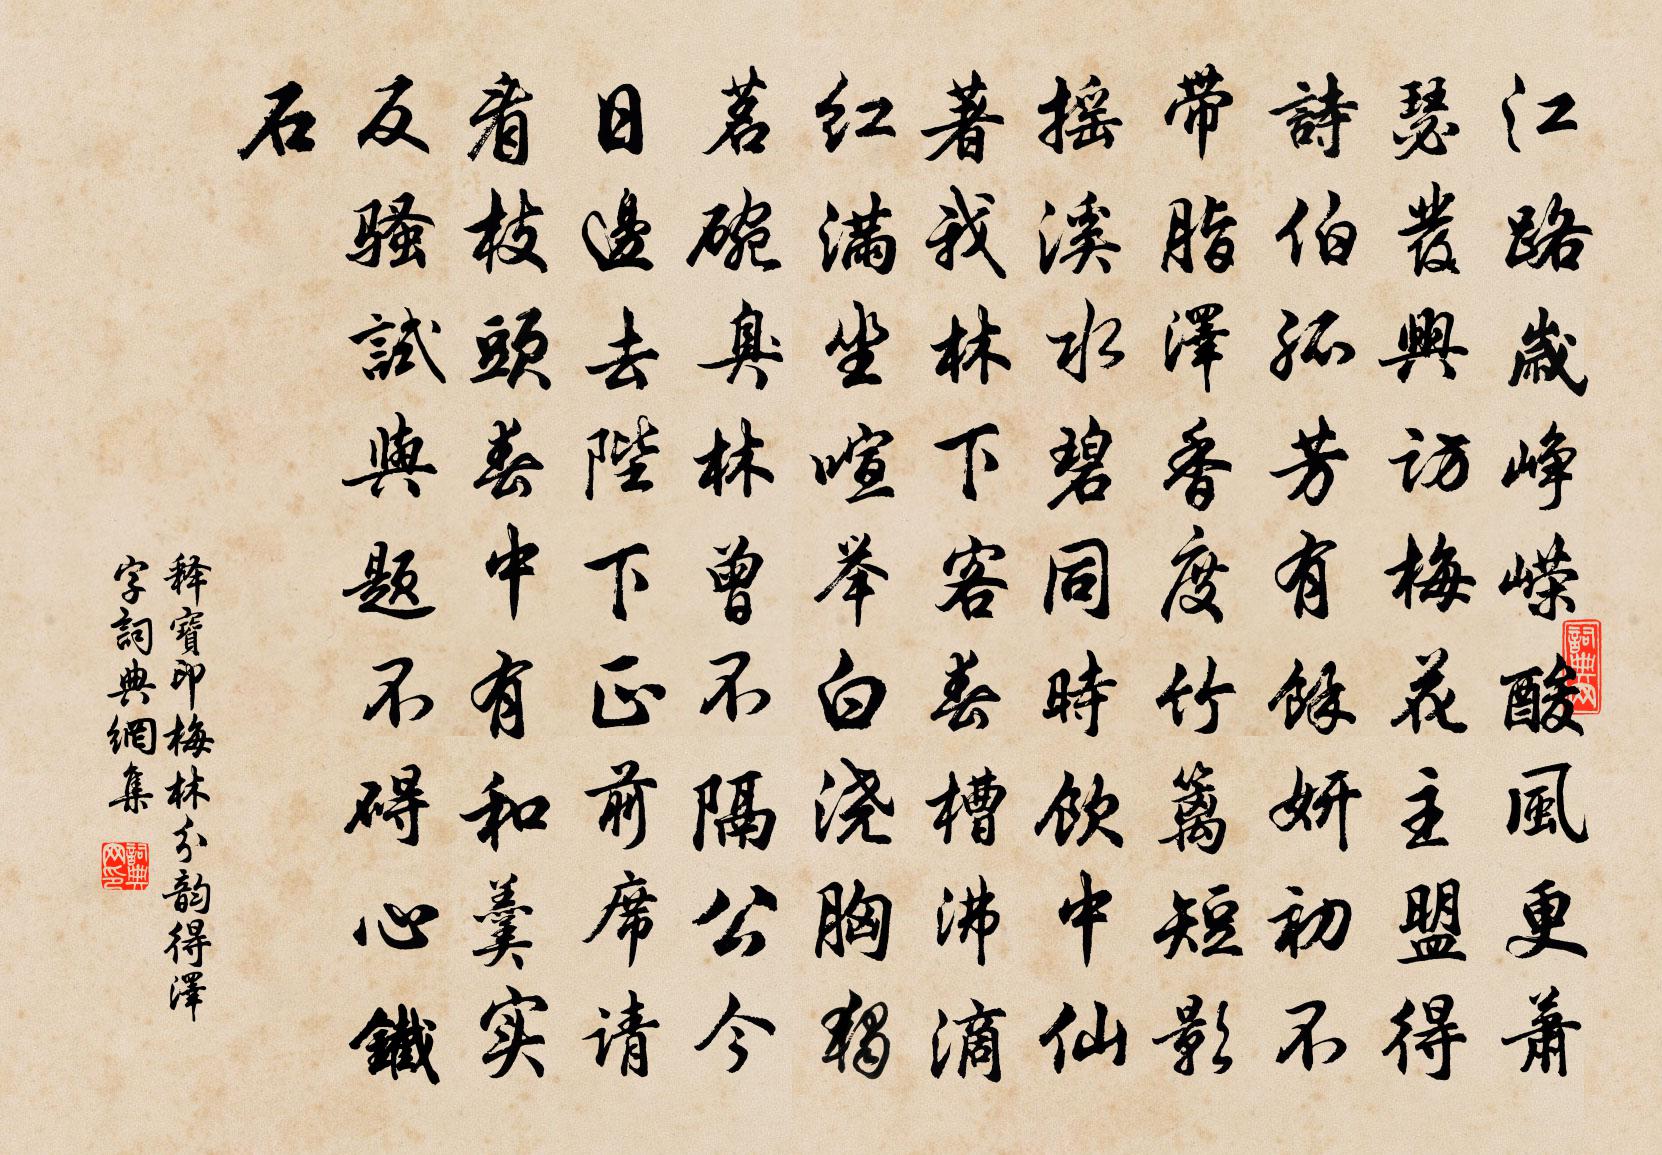 江路歲峥嵘酸風更萧
瑟發興访梅花主盟得
詩伯孤芳有餘妍初不
带脂澤香度竹篱短影
摇溪水碧同時飲中仙
著我林下客春槽沸滴
红满坐喧举白浇胸独
茗碗臭林曽不隔公今
日邊去陛下正前席请
看枝頭春中有和羹实
反骚試與题不碍心鐵
石
释寶印梅林分韵得澤
字詞典網集
詞典网
詞典网